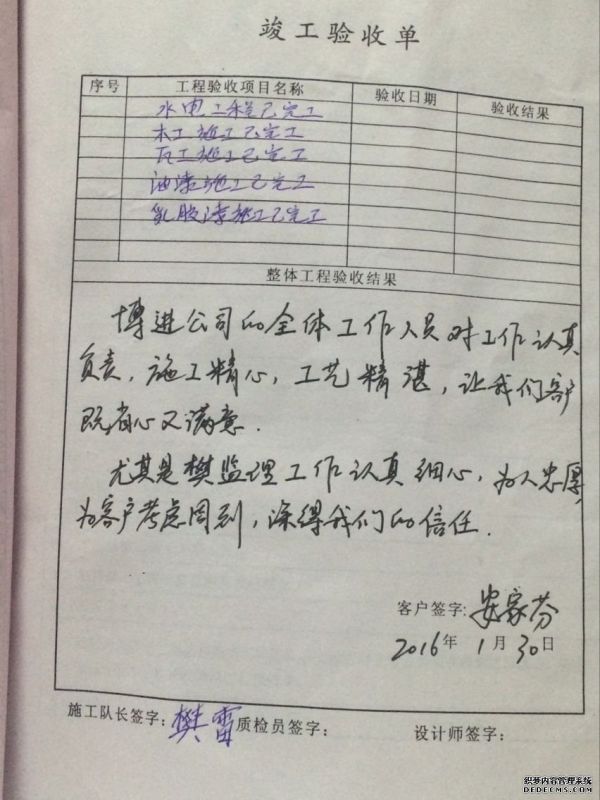 竣工验收单
序号 工程验收项目名称 验收日期 验收结果
水电工程已完工
木工施工已完工
瓦工施工已完工
油漆施工已完工
乳胶漆施工已完工
整体工程验收结果
博进公司的全体工作人员对工作认真
负责，施工精心，工艺精湛，让我们客户
既省心又满意.
尤其是樊监理工作认真细心，为人忠厚，
为客户考虑周到，深得我们的信任.
客户签字：安家芬
2016年1月30日
施工队长签字：樊雷 质检员签字： 设计师签字：
织梦内容管理系统
DEDECMS.COM